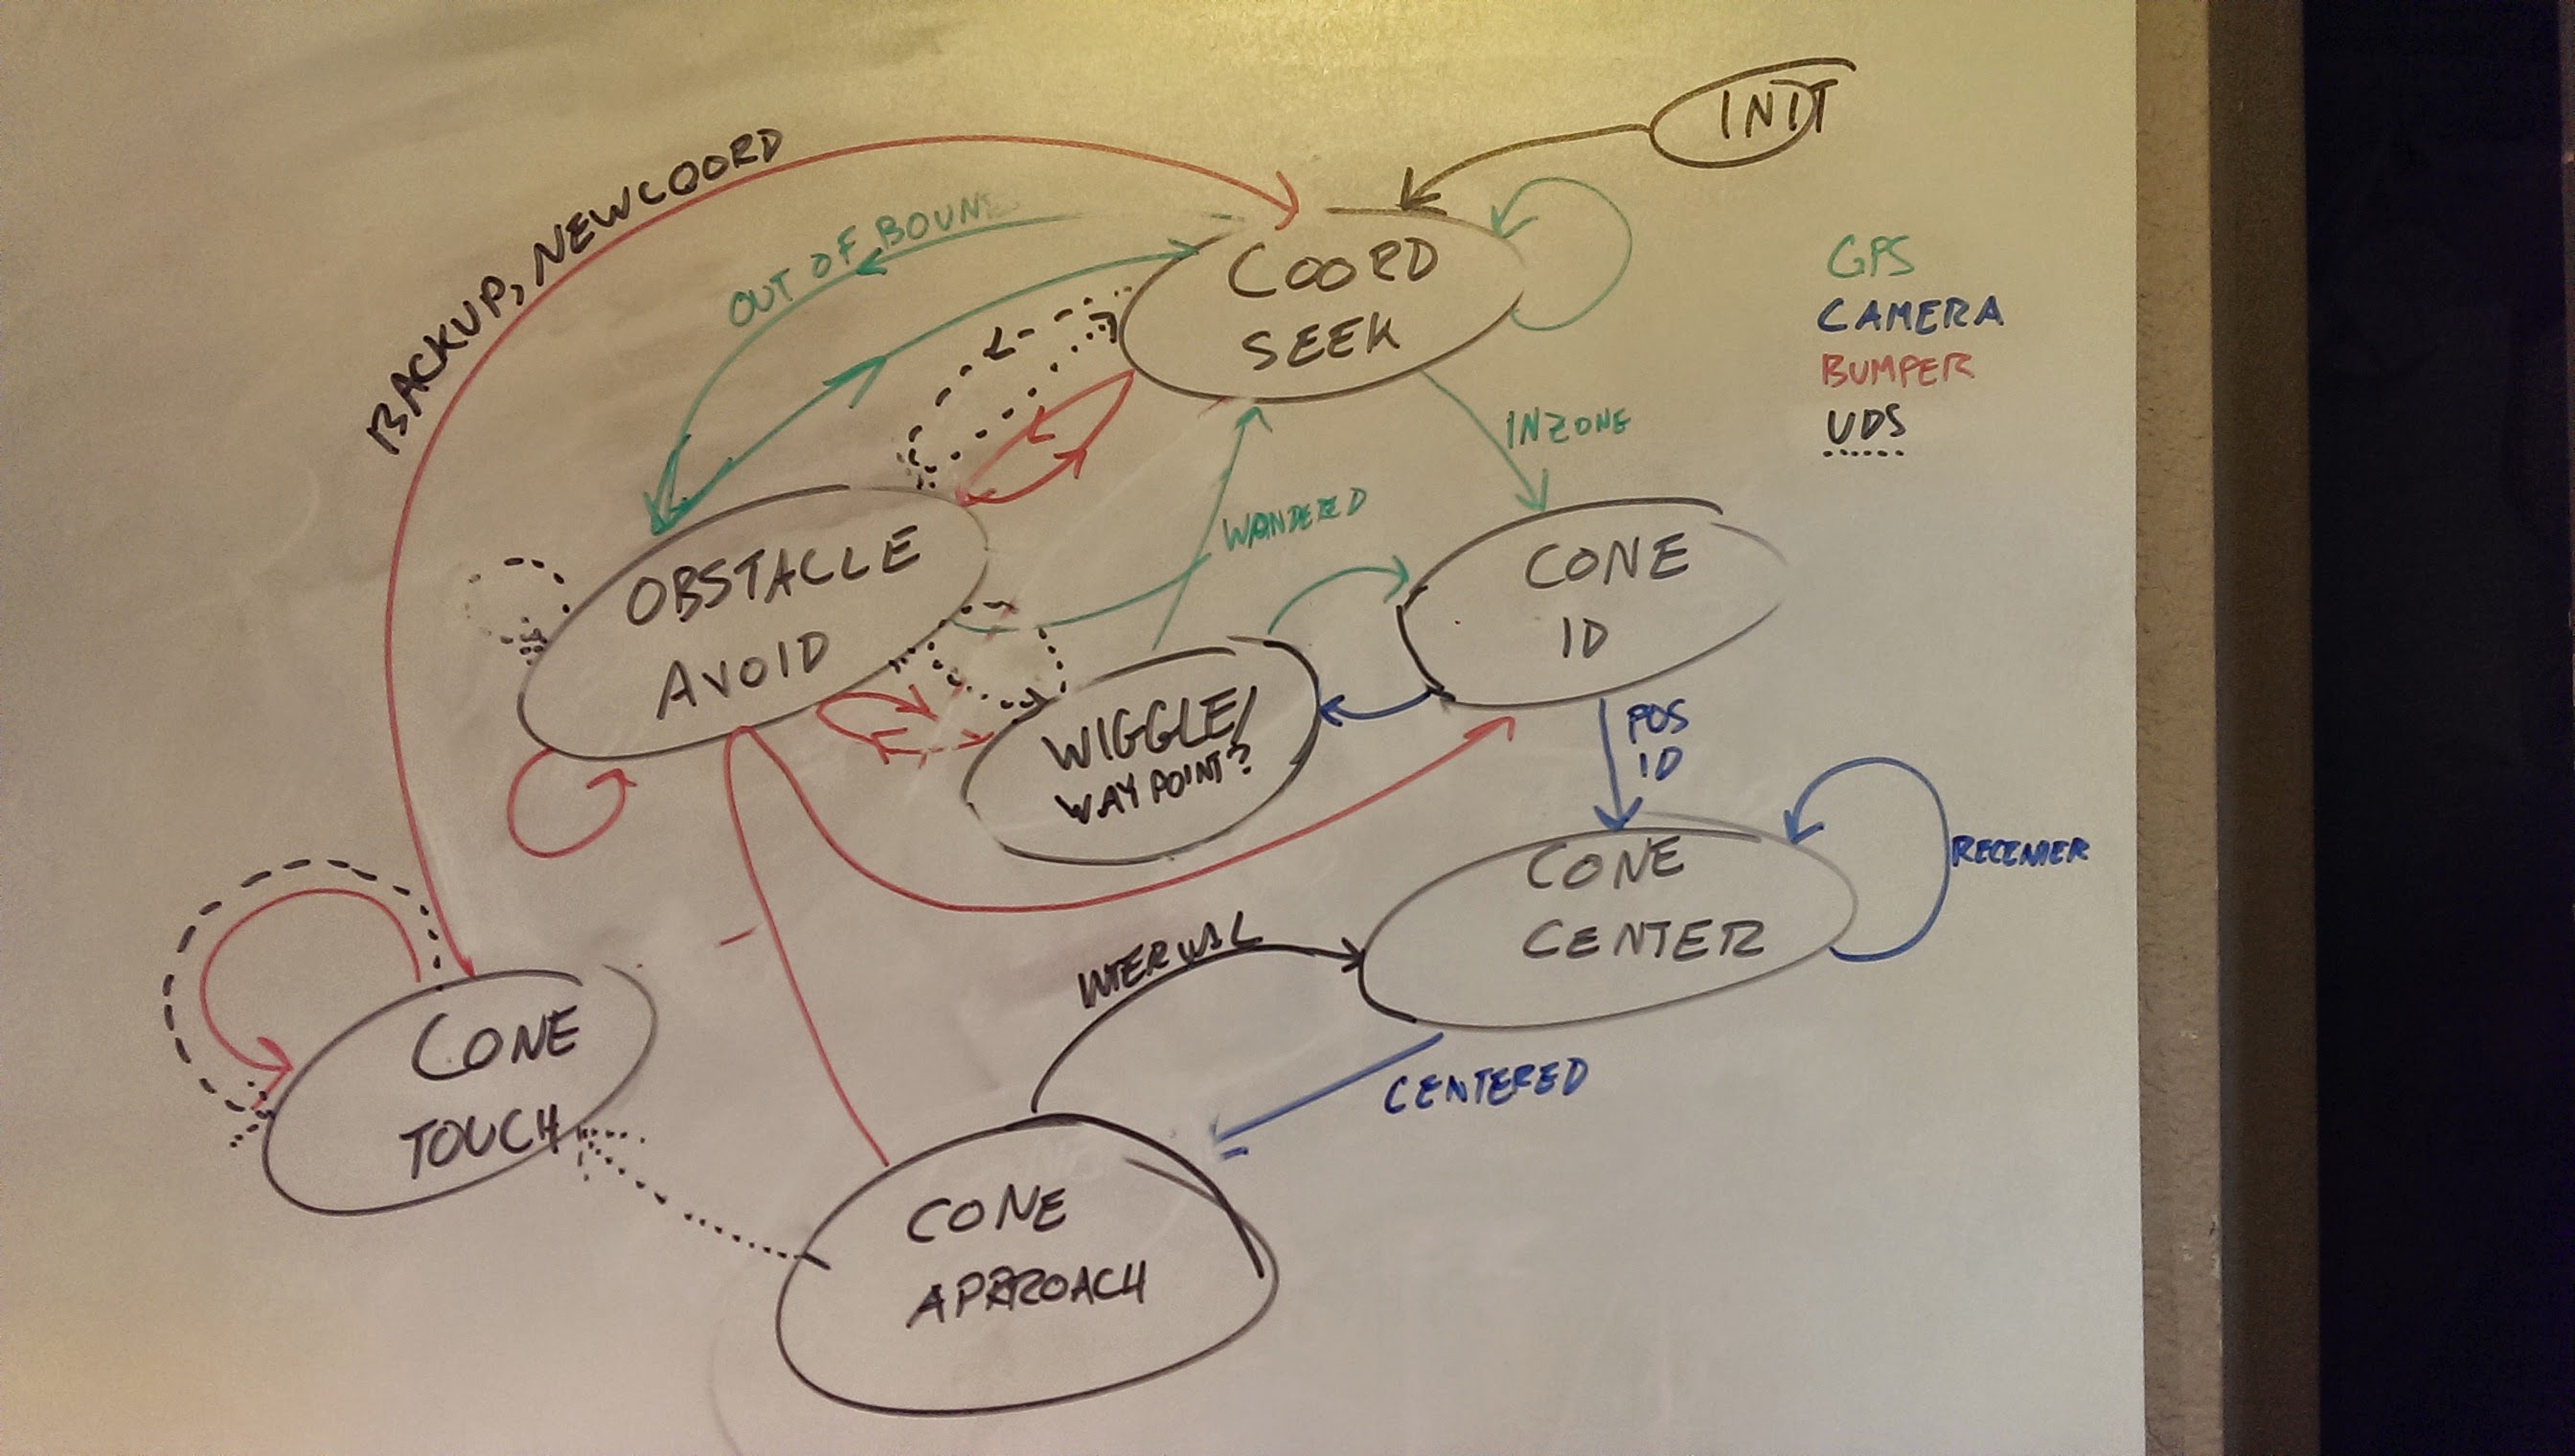 INIT
BACKUP, NEWCOORD
OUT OF BOUN
COORD
SEEK
GPS
CAMERA
BUMPER
UDS
INZONE
WANDERED
OBSTACLE
AVOID
CONE
ID
WIGGLE/
WAYPOINT?
POS
ID
CONE
CENTER
RECENTER
INTERVAL
CENTERED
CONE
TOUCH
CONE
APPROACH